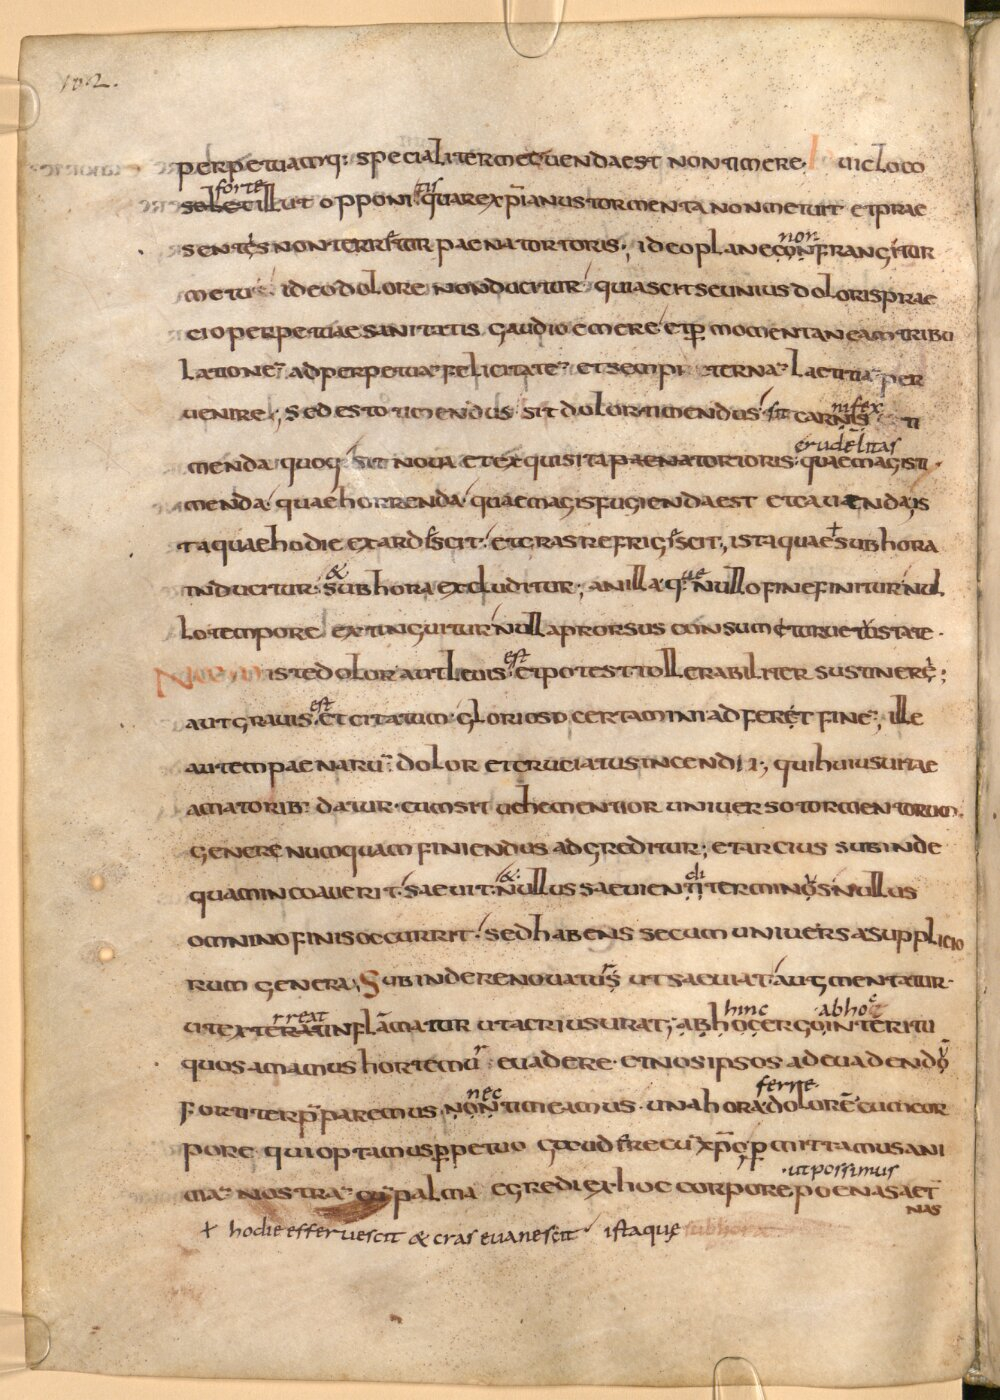 102.
perpetuamq: specialiter metuenda est non timere. huic loco
forte
solet illut opponi tis quare xp̄ianus tormenta non metuit et prae
sentes non terretur paena tortoris; ideo plane non confrangitur
metu ideo dolore non ducitur quia scit se unius doloris prae
cio perpetuae sanitatis gaudio emere et p̱ momentaneam tribu
latione᷒ ad perpetua᷒ felicitate᷒ et sempiterna᷒ laetitia᷒ per
uenire; sed esto timendus sit dolor timendus sit carnis nifex ti
menda quoq; sit noua et exquisita paena tortoris crudelitas quae magis ti
menda quae horrenda quae magis fugienda est et cauenda is
ta quae hodie exardescit et cras refrigescit, ista quae + sub hora
inducitur & sub hora excluditur; an illa q: ae nullo fine finitur nul
lo tempore extinguitur nulla prorsus consumitur uetustate.
Nam iste dolor aut leuis est et potest tollerabiliter sustinere;
aut grauis est et citatum glorioso certamini adferet fine᷒, ille
autem paenaru᷒ dolor et cruciatus incendii; qui huius uitae
amatorib: datur cum sit uehementior uniuerso tormentorum
genere numquam finiendus adgreditur; et artius subinde
quam incoauerit saeuit & nullus saeuiendi terminus nullus
omnino finis occurrit sed habens secum uniuersa supplicio
rum genera, Subinde renouatur ut saeuiat augmentatur
ut exterreat inflāmatur ut acrius urat; ab hoc hinc ergo ab hoc interitu
quos amamus hortemur euadere et nos ipsos ad euadendū
fortiter p̄paremus nec non timeamus una hora dolorē ferre cum cor
pore qui optamus p̱petuo gaudere cū xp̄o p̱mittamus ani
ma᷒ nostra᷒ cū palma egredi ex hoc corpore poenas aet̄
· ut possimus
nas
+ hodie efferuescit & cras euanescit istaque sub hora